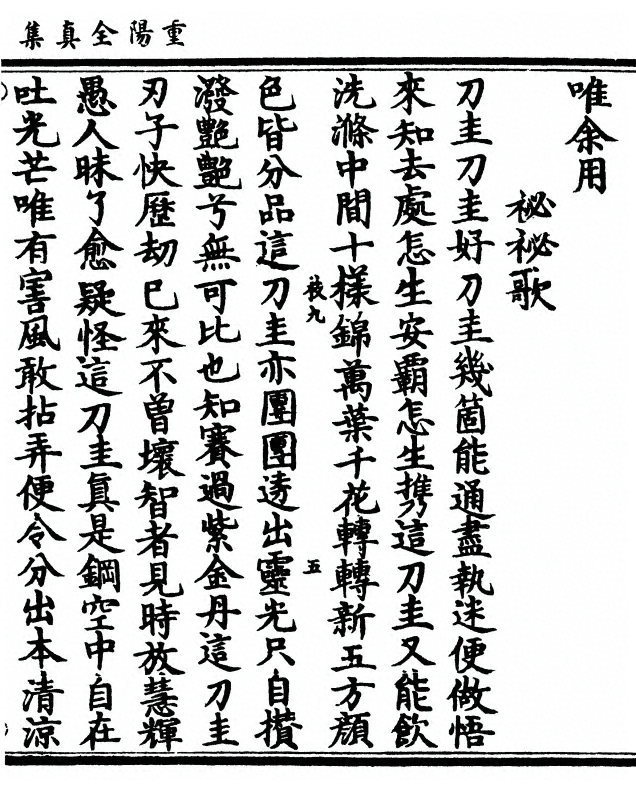 重陽全真集
唯余用
祕祕歌
刀圭刀圭好刀圭幾箇能通盡執迷便做悟
來知去處怎生安霸怎生攜這刀圭又能飲
洗滌中間十樣錦萬葉千花轉轉新五方顏
枝九
五
色皆分品這刀圭亦團團透出靈光只自攢
潑艷艷兮無可比也知賽過紫金丹這刀圭
刃子快歷劫已來不曾壞智者見時放慧輝
愚人昧了愈疑怪這刀圭真是鋼空中自在
吐光芒唯有害風敢拈弄便令分出本清涼